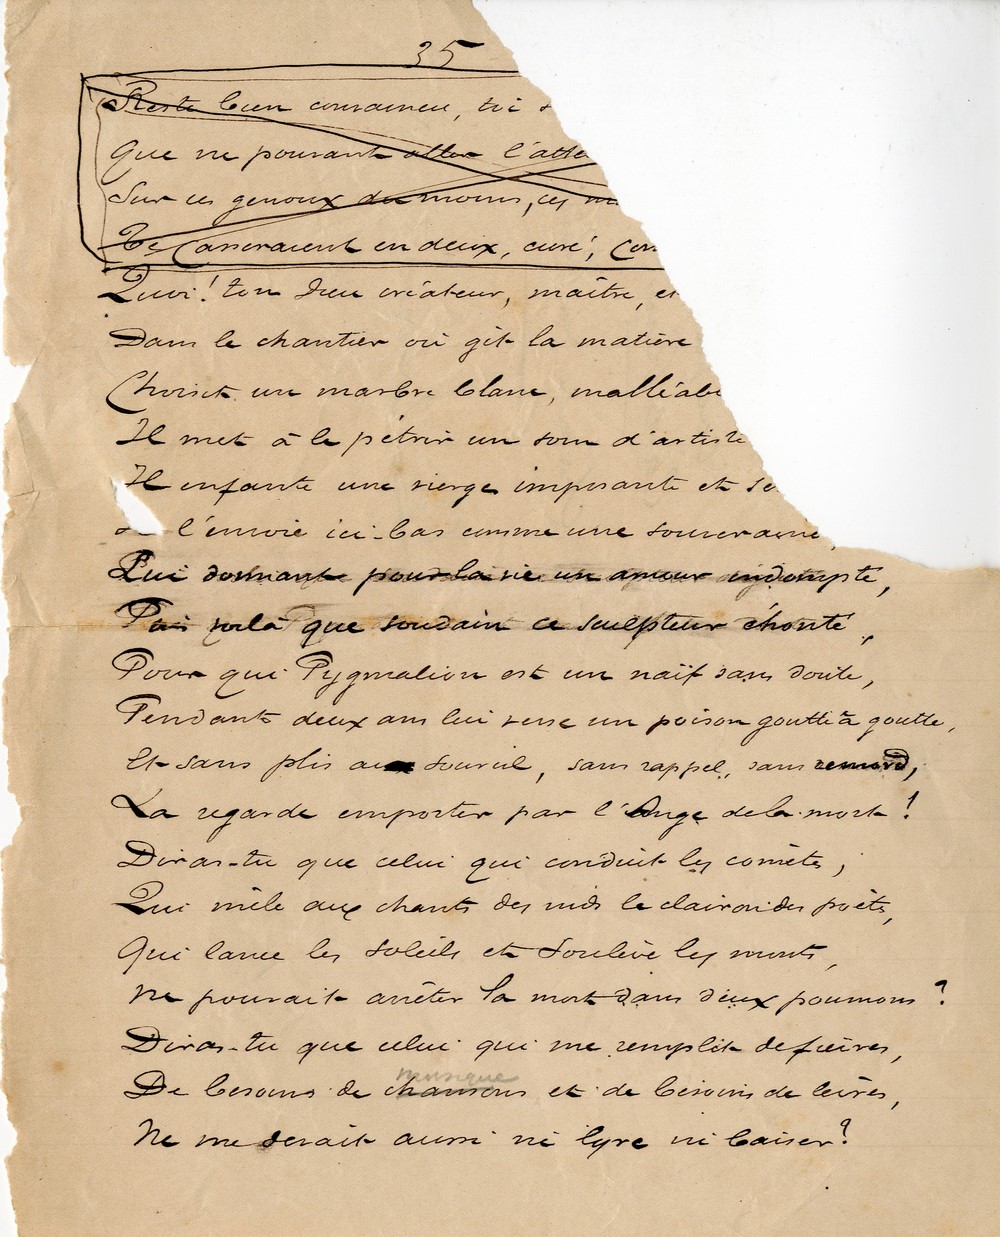 35
Reste bien convaincu, toi
Que ne pouvant aller l'atte
Sur ces genoux du moins, ces m
Te casseraient en deux, curé, Com
Quoi! ton Dieu créateur, maître, et
Dans le chantier où gît la matière
Choisit un marbre blanc, malléab
Il met à le pétrir un soin d'artiste
Il enfante une vierge imposante et se
l'envoie ici-bas comme une souveraine,
Lui donnant pour la vie un amour indompté,
Puis voilà que soudain ce sculpteur éhonté,
Pour qui Pygmalion est un naïf sans doute,
Pendant deux ans lui verse un poison goutte à goutte,
Et sans plis au sourcil, sans rappel, sans remord,
La regarde emporter par l'Ange de la mort!
Diras-tu que celui qui conduit les comètes,
Qui mêle aux chants des nids le clairon des poètes,
Qui lance les soleils et soulève les monts,
Ne pourait arrêter la mort dans deux poumons?
Diras-tu que celui qui me remplit de fièvres,
musique
De besoins de chansons et de besoins de lèvres,
Ne me devait aussi ni lyre ni baiser?